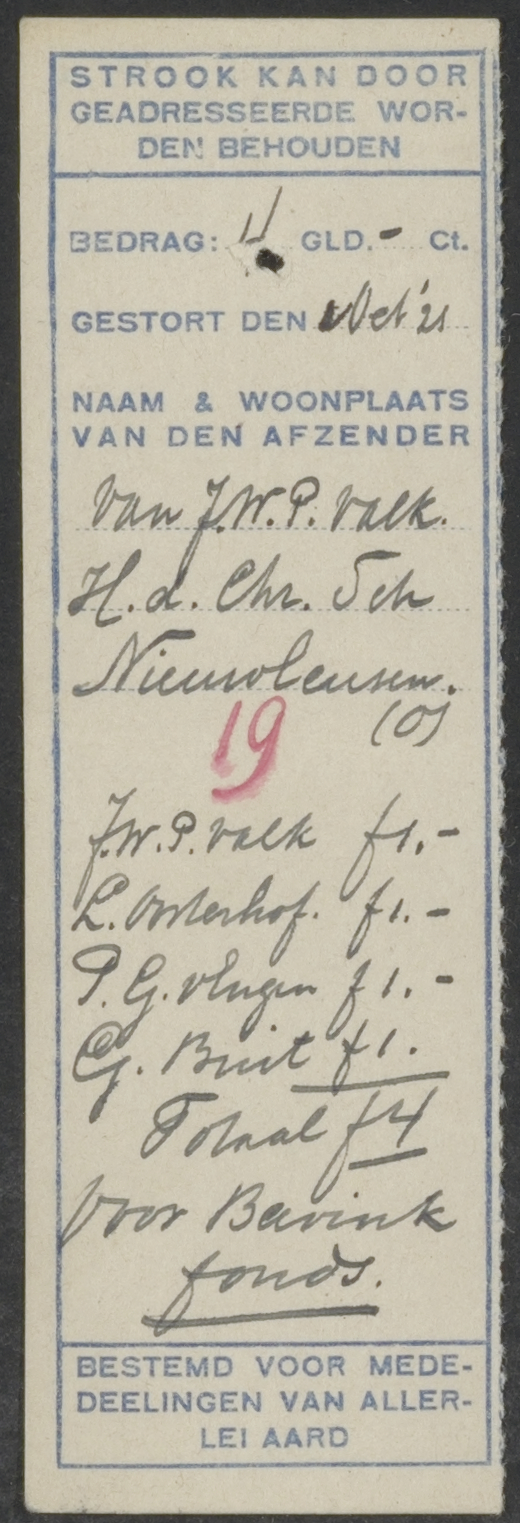 STROOK KAN DOOR
GEADRESSEERDE WOR-
DEN BEHOUDEN
BEDRAG: 4 GLD. - Ct.
GESTORT DEN Oct '21
NAAM & WOONPLAATS
VAN DEN AFZENDER
van J.W.P. Valk.
H.d. Chr. Sch
Nieuwleusen.
19 (O)
J.W.P. Valk f 1.-
L. Oosterhof. f 1.-
P.G. f 1.-
G. Buit f 1.
Totaal f 4
Voor Bavink
fonds.
BESTEMD VOOR MEDE-
DEELINGEN VAN ALLER-
LEI AARD